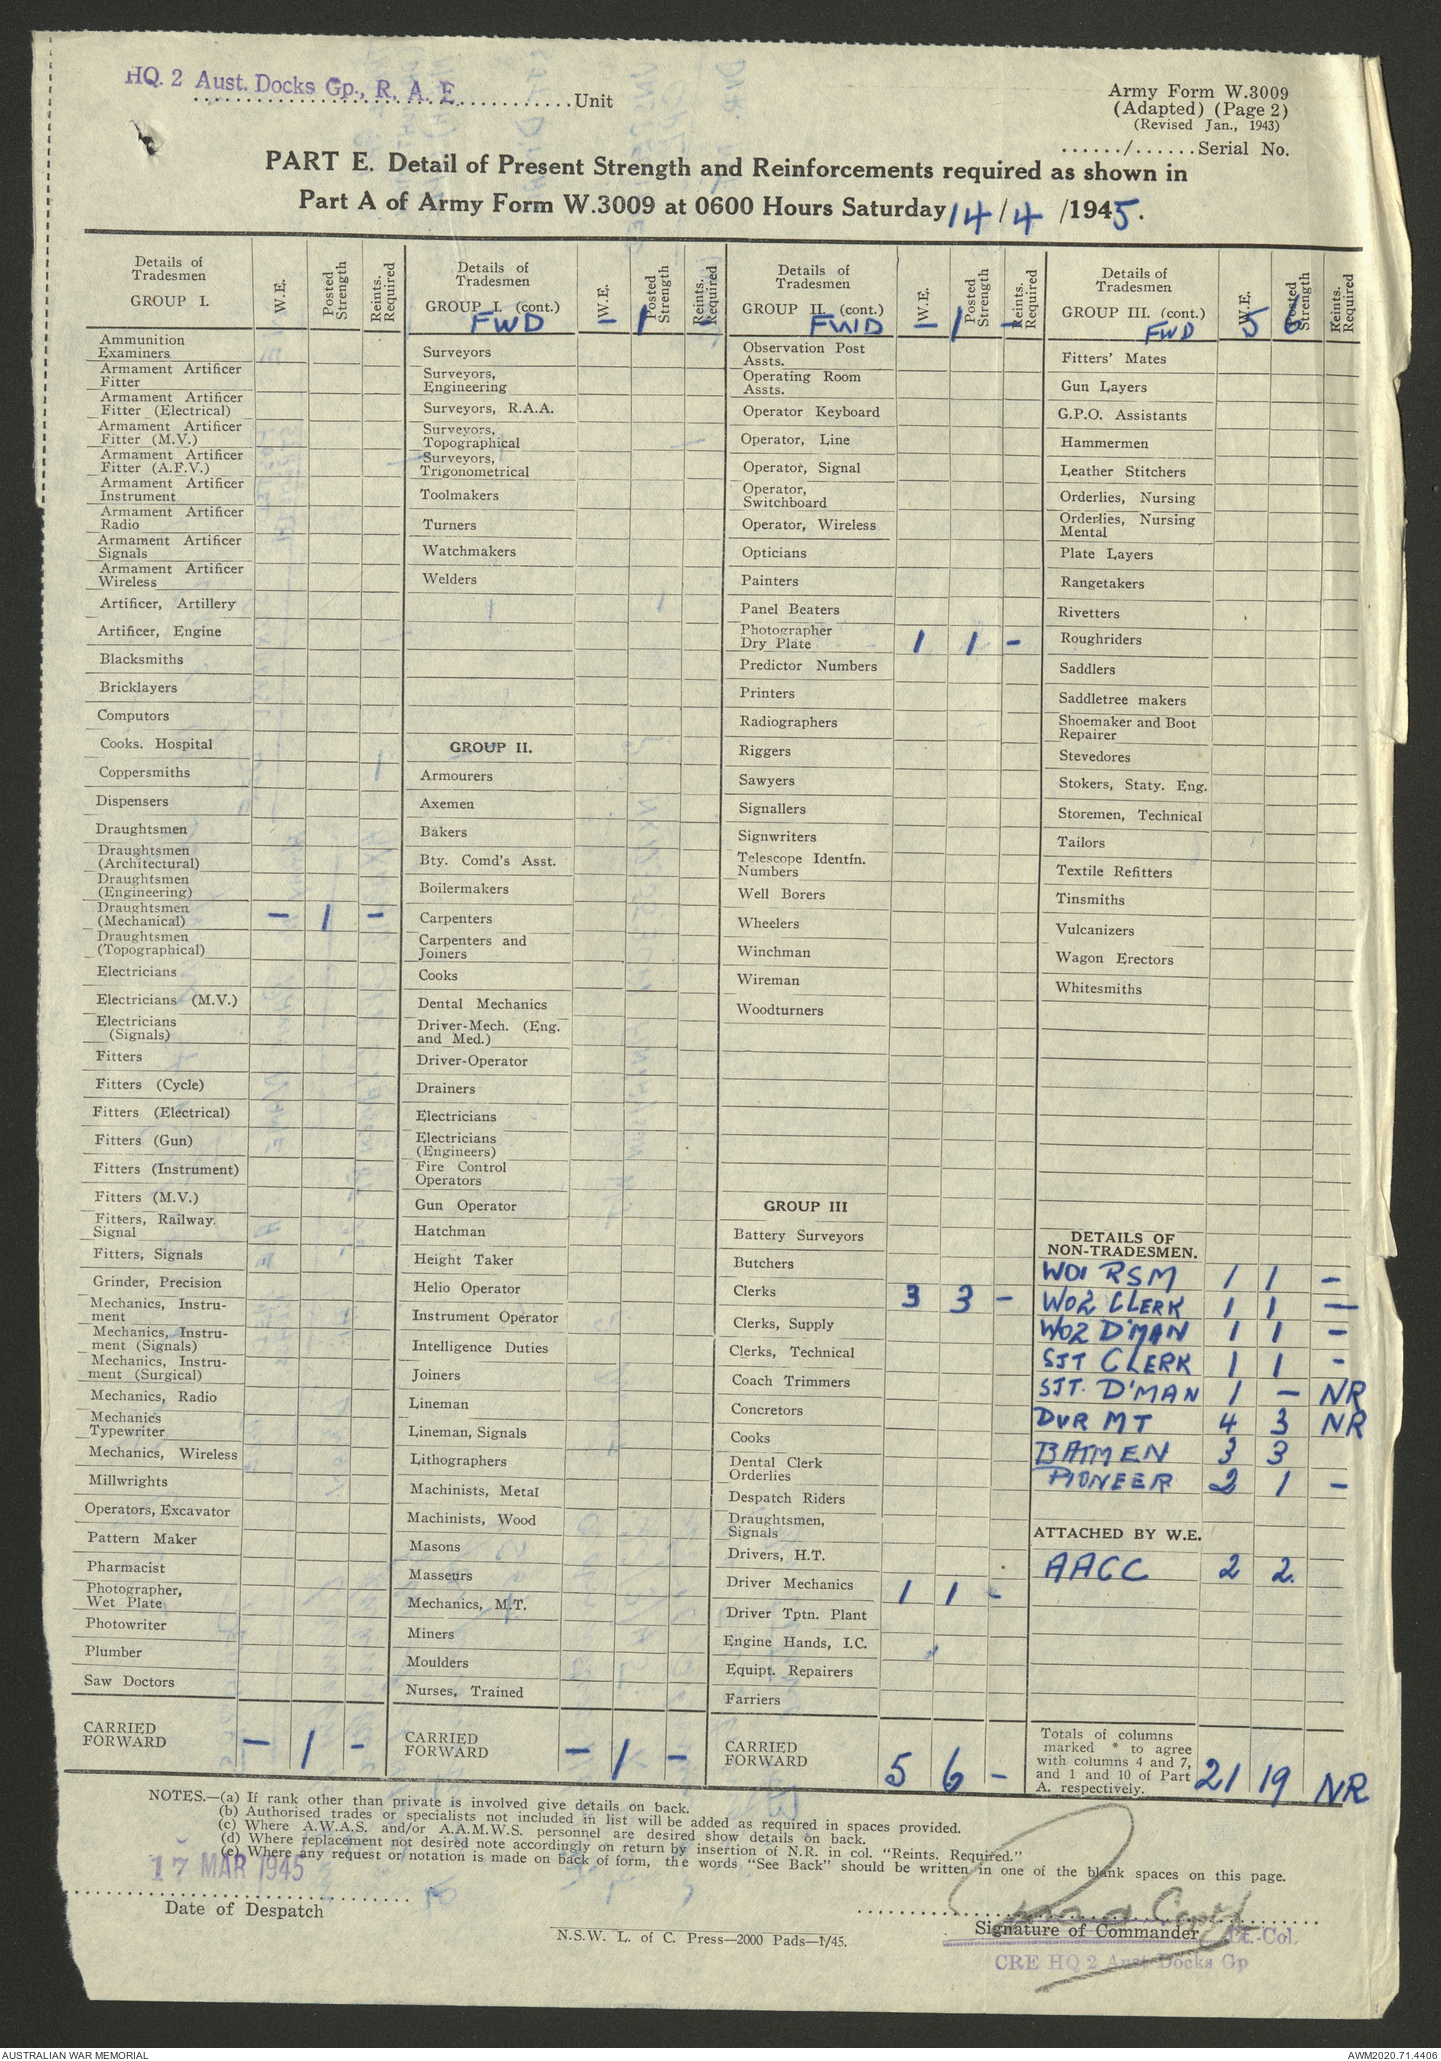 HQ. 2 Aust. Docks Gp., R. A. E. Unit
Army Form W.3009
(Adapted) (Page 2)
(Revised Jan., 1943)
....../......Serial No.
PART E. Detail of Present Strength and Reinforcements required as shown in
Part A of Army Form W.3009 at 0600 Hours Saturday 14/4/1945.
Details of
Tradesmen
GROUP I.
W.E.
Posted Strength
Reints. Required
Ammunition
Examiners
Armament Artificer
Fitter
Armament Artificer
Fitter (Electrical)
Armament Artificer
Fitter (M.V.)
Armament Artificer
Fitter (A.F.V.)
Armament Artificer
Instrument
Armament Artificer
Radio
Armament Artificer
Signals
Armament Artificer
Wireless
Artificer, Artillery
Artificer, Engine
Blacksmiths
Bricklayers
Computors
Cooks. Hospital
Coppersmiths
Dispensers
Draughtsmen
Draughtsmen
(Architectural)
Draughtsmen
(Engineering)
Draughtsmen
(Mechanical) - 1 -
Draughtsmen
(Topographical)
Electricians
Electricians (M.V.)
Electricians
(Signals)
Fitters
Fitters (Cycle)
Fitters (Electrical)
Fitters (Gun)
Fitters (Instrument)
Fitters (M.V.)
Fitters, Railway.
Signal
Fitters, Signals
Grinder, Precision
Mechanics, Instru-
ment
Mechanics, Instru-
ment (Signals)
Mechanics, Instru-
ment (Surgical)
Mechanics, Radio
Mechanics
Typewriter
Mechanics, Wireless
Millwrights
Operators, Excavator
Pattern Maker
Pharmacist
Photographer,
Wet Plate
Photowriter
Plumber
Saw Doctors
CARRIED
FORWARD - 1 -
Details of
Tradesmen
GROUP I. (cont.)
W.E.
Posted Strength
Reints. Required
FWD - 1
Surveyors
Surveyors,
Engineering
Surveyors, R.A.A.
Surveyors,
Topographical
Surveyors,
Trigonometrical
Toolmakers
Turners
Watchmakers
Welders
GROUP II.
Armourers
Axemen
Bakers
Bty. Comd's Asst.
Boilermakers
Carpenters
Carpenters and
Joiners
Cooks
Dental Mechanics
Driver-Mech. (Eng.
and Med.)
Driver-Operator
Drainers
Electricians
Electricians
(Engineers)
Fire Control
Operators
Gun Operator
Hatchman
Height Taker
Helio Operator
Instrument Operator
Intelligence Duties
Joiners
Lineman
Lineman, Signals
Lithographers
Machinists, Metal
Machinists, Wood
Masons
Masseurs
Mechanics, M.T.
Miners
Moulders
Nurses, Trained
CARRIED
FORWARD - 1 -
Details of
Tradesmen
GROUP II. (cont.)
W.E.
Posted Strength
Reints. Required
FWD - 1 -
Observation Post
Assts.
Operating Room
Assts.
Operator Keyboard
Operator, Line
Operator, Signal
Operator,
Switchboard
Operator, Wireless
Opticians
Painters
Panel Beaters
Photographer
Dry Plate 1 1 -
Predictor Numbers
Printers
Radiographers
Riggers
Sawyers
Signallers
Signwriters
Telescope Identfn.
Numbers
Well Borers
Wheelers
Winchman
Wireman
Woodturners
GROUP III
Battery Surveyors
Butchers
Clerks 3 3 -
Clerks, Supply
Clerks, Technical
Coach Trimmers
Concretors
Cooks
Dental Clerk
Orderlies
Despatch Riders
Draughtsmen,
Signals
Drivers, H.T.
Driver Mechanics 1 1 -
Driver Tptn. Plant
Engine Hands, I.C.
Equipt. Repairers
Farriers
CARRIED
FORWARD 5 6 -
Details of
Tradesmen
GROUP III. (cont.)
W.E.
Posted Strength
Reints. Required
FWD 5 6
Fitters' Mates
Gun Layers
G.P.O. Assistants
Hammermen
Leather Stitchers
Orderlies, Nursing
Orderlies, Nursing
Mental
Plate Layers
Rangetakers
Rivetters
Roughriders
Saddlers
Saddletree makers
Shoemaker and Boot
Repairer
Stevedores
Stokers, Staty. Eng.
Storemen, Technical
Tailors
Textile Refitters
Tinsmiths
Vulcanizers
Wagon Erectors
Whitesmiths
DETAILS OF
NON-TRADESMEN.
WO1 RSM 1 1 -
WO2 CLERK 1 1 -
WO2 D'MAN 1 1 -
SJT CLERK 1 1 -
SJT. D'MAN 1 - NR
DVR MT 4 3 NR
BATMEN 3 3
PIONEER 2 1 -
ATTACHED BY W.E.
AACC 2 2.
Totals of columns
marked * to agree
with columns 4 and 7,
and 1 and 10 of Part
A. respectively. 21 19 NR
NOTES.—(a) If rank other than private is involved give details on back.
(b) Authorised trades or specialists not included in list will be added as required in spaces provided.
(c) Where A.W.A.S. and/or A.A.M.W.S. personnel are desired show details on back.
(d) Where replacement not desired note accordingly on return by insertion of N.R. in col. "Reints. Required."
(e) Where any request or notation is made on back of form, the words "See Back" should be written in one of the blank spaces on this page.
17 MAR 1945
Date of Despatch
N.S.W. L. of C. Press—2000 Pads—1/45.
Capt
Signature of Commander Lt.-Col.
CRE HQ 2 Aust Docks Gp
AUSTRALIAN WAR MEMORIAL
AWM2020.71.4406